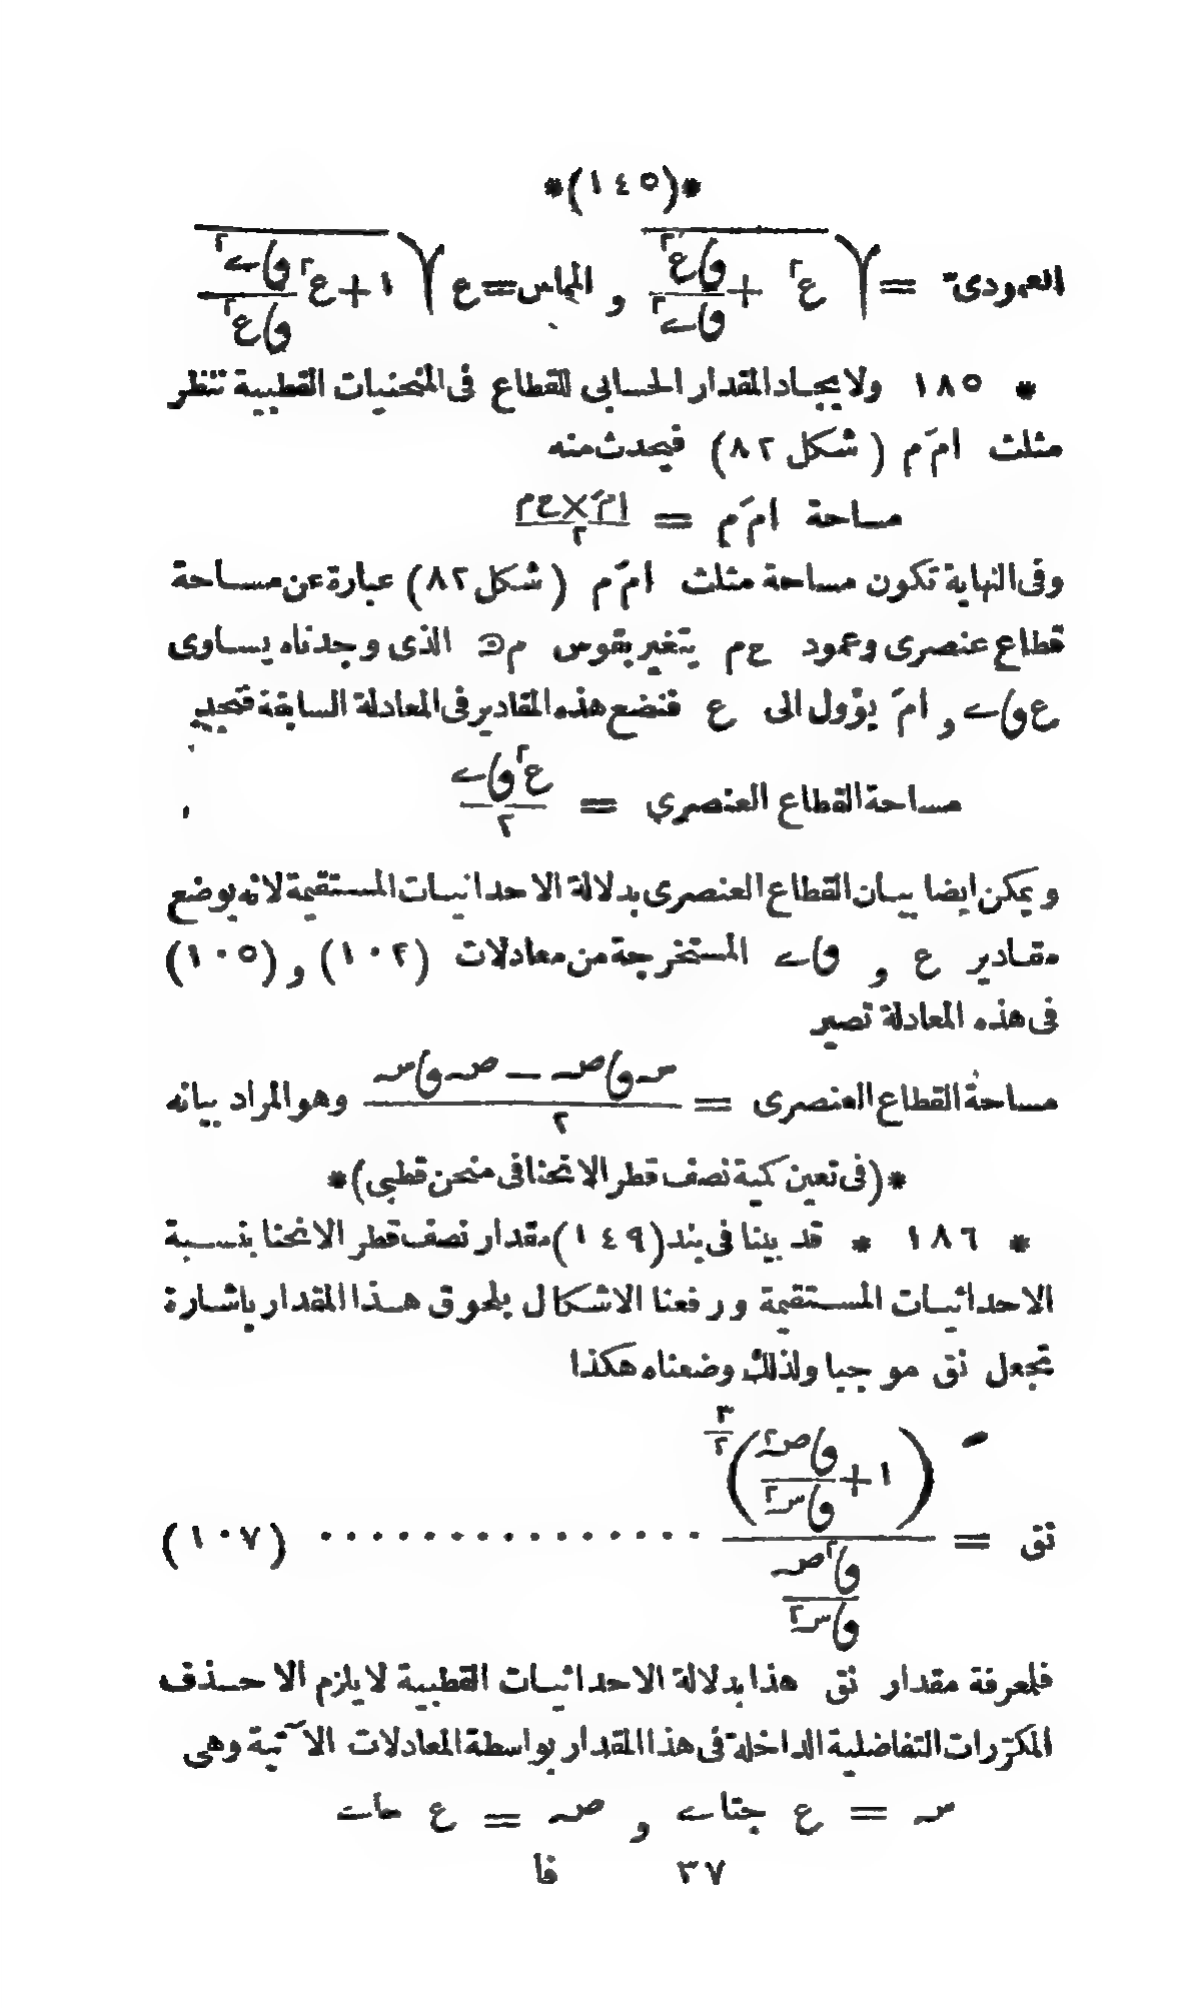 *(١٤٥)*
العمودى = √(ع٢ + و٢ع/و٢ى) و المماس = ع √(١ + ع٢ و٢ى/و٢ع)
* ١٨٥ ولايجاد المقدار الحسابى للقطاع فى المنحنيات القطبية تنظر
مثلث امَ م (شكل ٨٢) فيحدث منه
مساحة امَ م = امَ × ح م / ٢
وفى النهاية تكون مساحة مثلث امَ م (شكل ٨٢) عبارة عن مساحة
قطاع عنصرى وعمود ح م يتغير بقوس م ك الذى وجدناه يساوى
ع وى و امَ يؤول الى ع فنضع هذه المقادير فى المعادلة السابقة فتجد
مساحة القطاع العنصرى = ع٢ وى / ٢
ويمكن ايضا بيان القطاع العنصرى بدلالة الاحداثيات المستقيمة لانه بوضع
مقادير ع و وى المستخرجة من معادلات (١٠٢) و (١٠٥)
فى هذه المعادلة تصير
مساحة القطاع العنصرى = (س وص – ص وس) / ٢ وهو المراد بيانه
*(فى تعين كمية نصف قطر الانحنا فى منحن قطبى)*
* ١٨٦ * قد بينا فى بند (١٤٩) مقدار نصف قطر الانحنا بنسبة
الاحداثيات المستقيمة ورفعنا الاشكال بلحوق هذا المقدار باشارة
تجعل نق موجبا ولذلك وضعناه هكذا
نق = (١ + وص٢/وس٢)^(٣/٢) / (و٢ص/وس٢) ··············· (١٠٧)
فلمعرفة مقدار نق هذا بدلالة الاحداثيات القطبية لا يلزم الا حذف
المكررات التفاضلية الداخلة فى هذا المقدار بواسطة المعادلات الآتية وهى
س = ع جتاى و ص = ع حاى
٣٧ فا